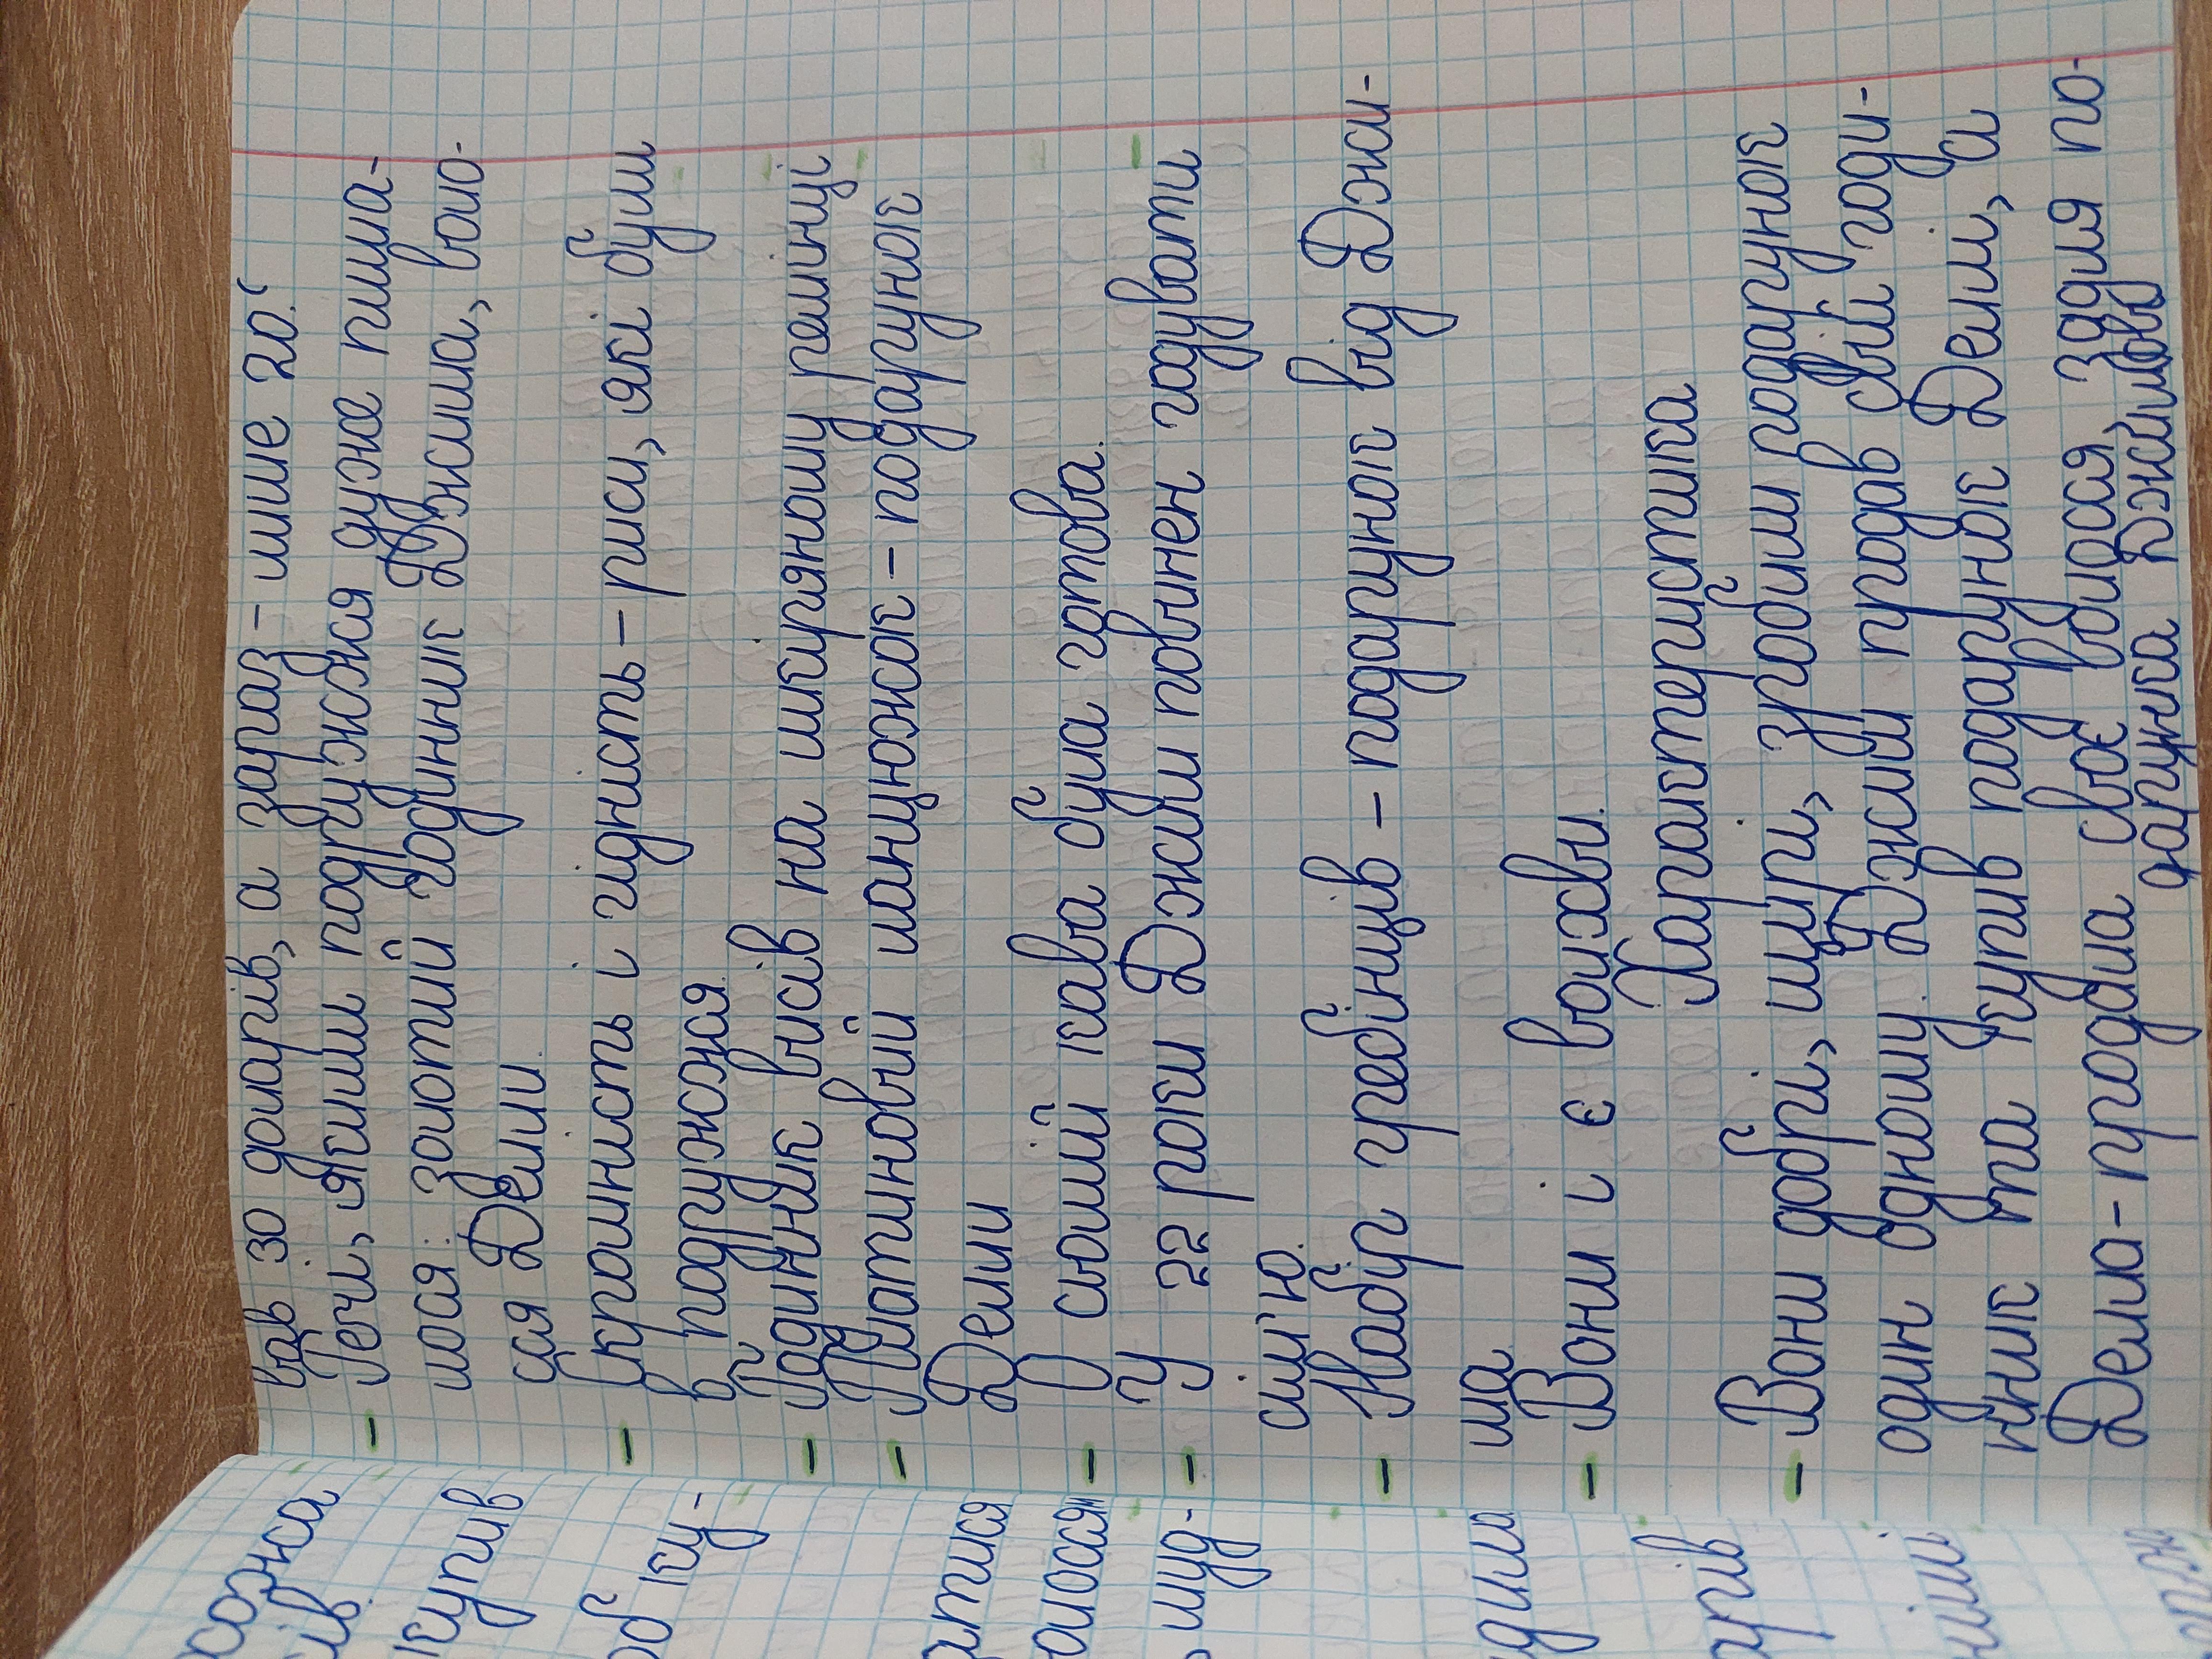 вав 30 доларів, а зараз - лише 20.
- Речі, якими подружжя дуже пиша-
лося: золотий годинник Джима, воло-
сся Делли.
- Скромність і гідність - риси, які були
в подружжя.
- Годинник висів на шкіряному ремінці
- Платиновий ланцюжок - подарунок
Делли
- О сьомій кава була готова.
- У 22 роки Джим повинен годувати
сім'ю.
- Набір гребінців - подарунок від Джи-
ма
- Вони і є волхви.
Характеристика
- Вони добрі, щирі, зробили подарунок
один одному. Джим продав свій годи-
нник та купив подарунок Деллі, а
Делла - продала своє волосся, задля по-
дарунка Джимові
сожа
ів
купив
об ку-
атися
олосся
муд-
дила
арів
ніші